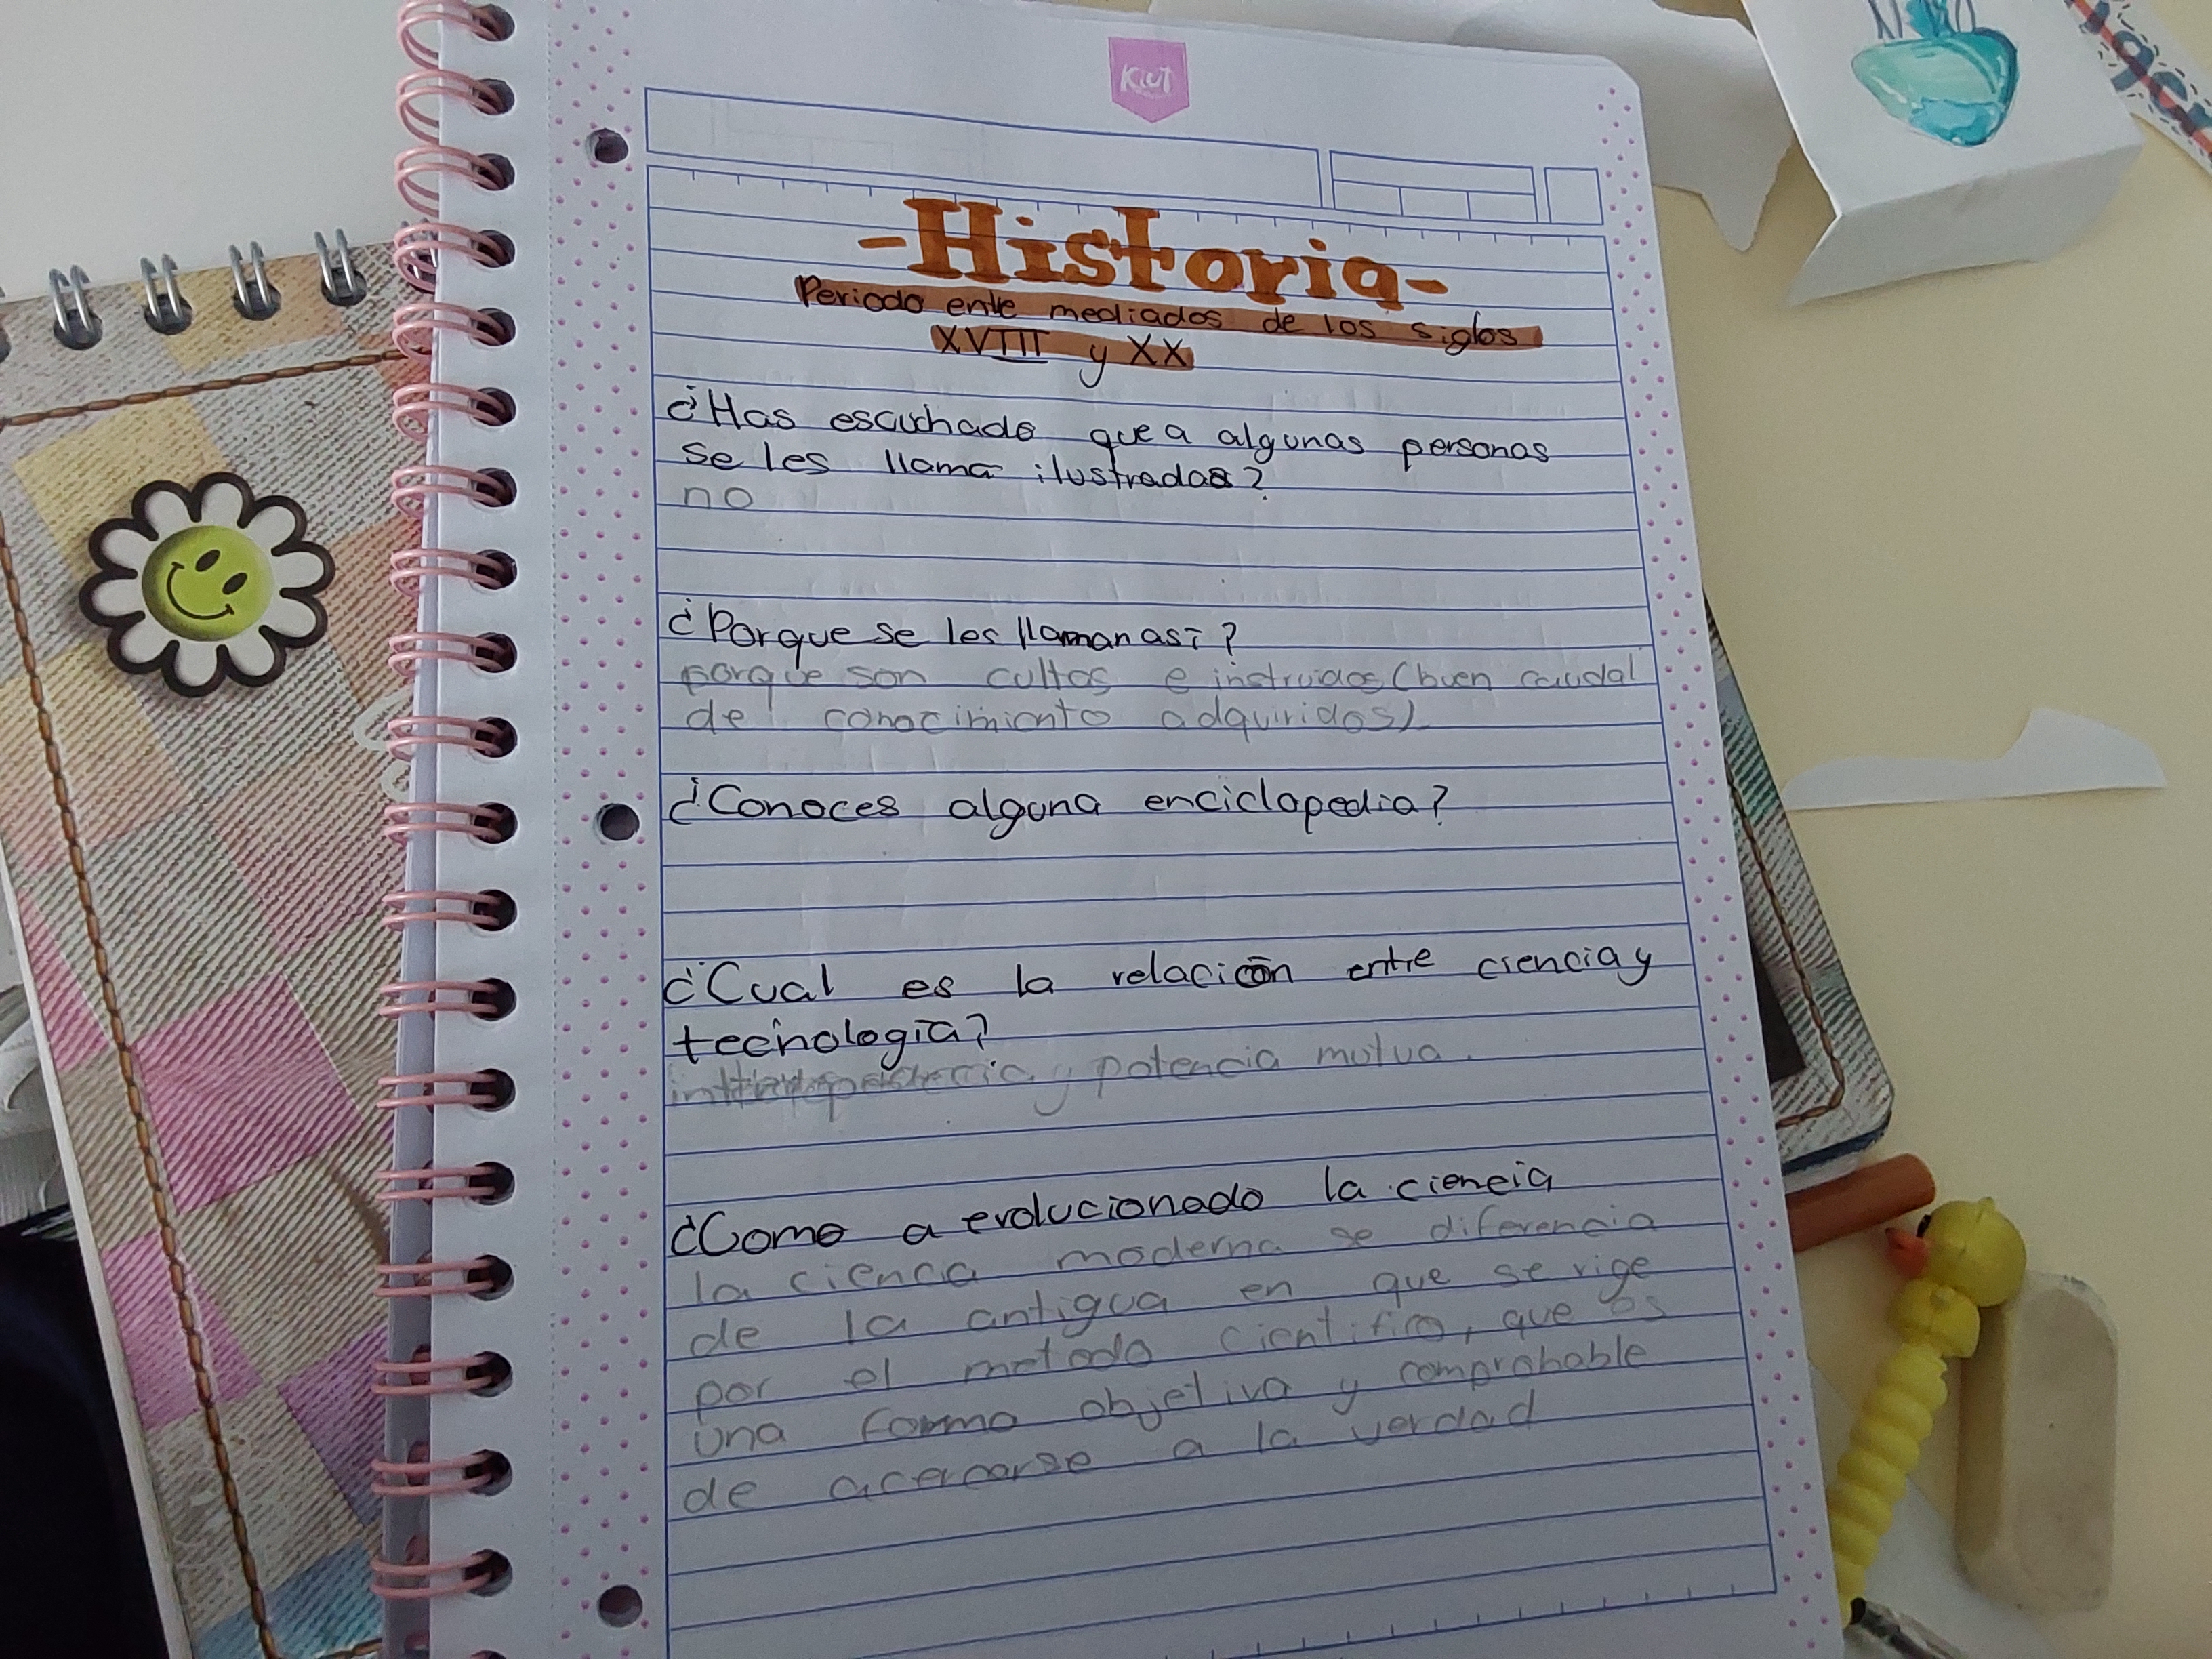 Kiut
-Historia-
Periodo ente mediados de los siglos
XVIII y XX
¿Has escuchado que a algunas personas
se les llama ilustradas?
no
¿Porque se les llaman así?
porque son cultos e instruidos (buen caudal
de conocimiento adquiridos).
¿Conoces alguna enciclopedia?
¿Cual es la relación entre ciencia y
tecnología?
y potencia mutua.
¿Como a evolucionado la ciencia
la ciencia moderna se diferencia
de la antigua en que se rige
por el metodo cientifico, que es
una forma objetiva y comprobable
de acercarse a la verdad